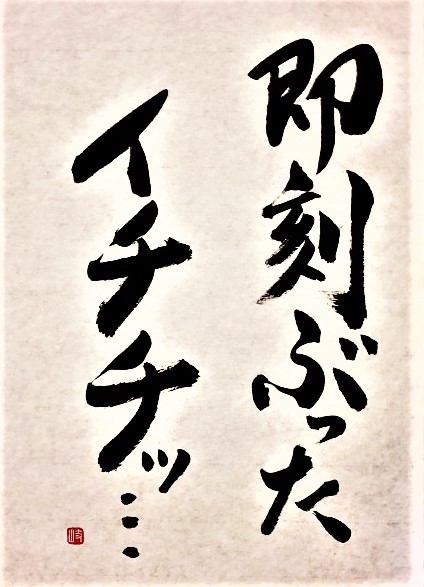 即刻ぶった
イチチッ…